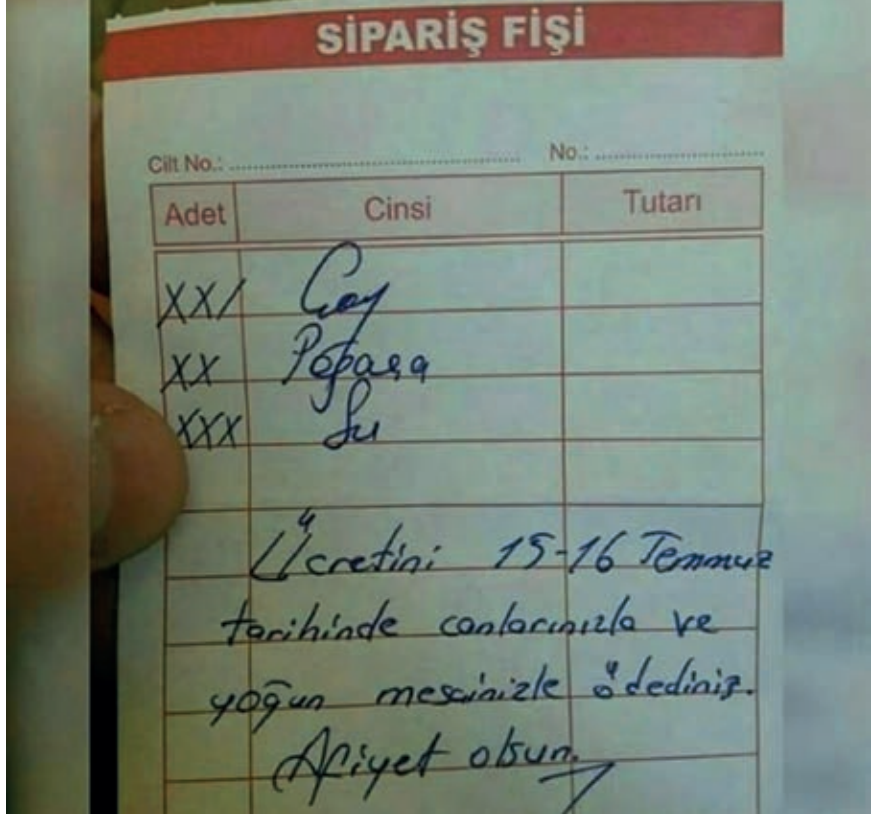 SİPARİŞ FİŞİ
Cilt No.: No.:
Adet Cinsi Tutarı
XX/ Çay
XX Poğaça
XXX Su
Ücretini 15-16 Temmuz
tarihinde canlarınızla ve
yoğun mesainizle ödediniz.
Afiyet olsun.